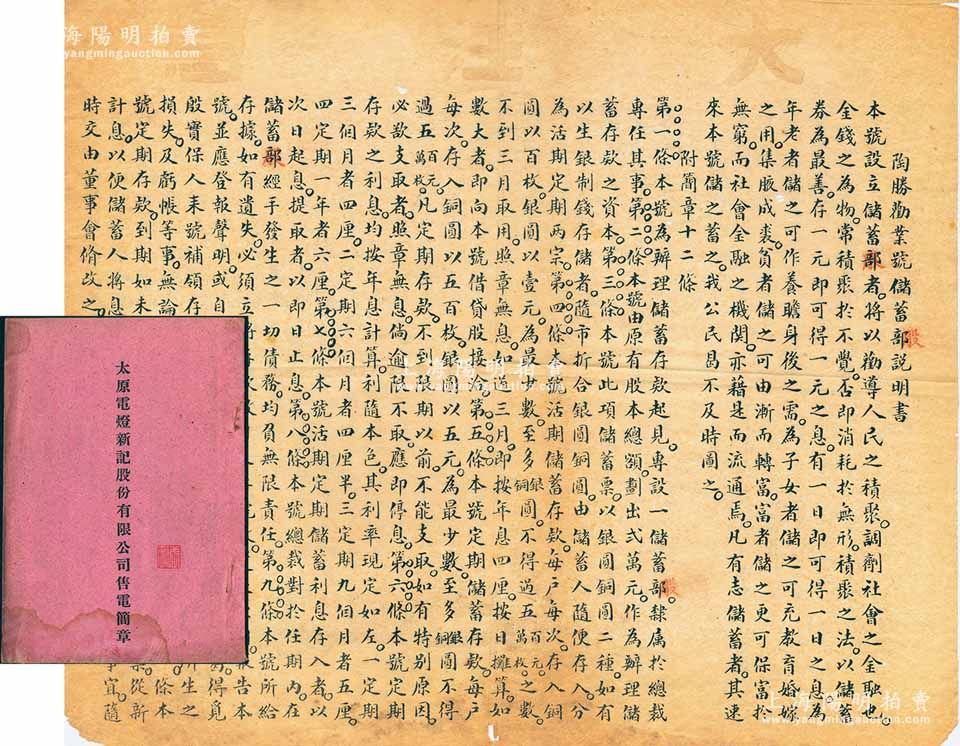 陶勝勸業號儲蓄部說明書
本號設立儲蓄部者。將以勸導人民之積聚。調劑社會之金融也。
金錢之為物。常積聚於不覺。否即消耗於無形。積聚之法。以儲蓄
券為最善。存一元即可得一元之息。有一日即可得一日之息。為
年老者儲之。可作養贍身後之需。為子女者儲之。可充教育婚嫁
之用。集腋成裘。貧者儲之。可由漸而轉富。富者儲之。更可保富於
無窮。而社會金融之機関。亦藉是而流通焉。凡有志儲蓄者。其速
來本號儲之蓄之。我公民曷不及時圖之。
附簡章十二條
第一條本號為辦理儲蓄存款起見。專設一儲蓄部。隸属於總裁
專任其事。第二條本號由原有股本總額。劃出弍萬元。作為辦理儲
蓄存款之資本。第三條本號此項儲蓄票。以銀圓銅圓二種。如有
以生銀制錢存儲者。隨市折合銀圓銅圓。由儲蓄人隨便存入。分
為活期定期兩宗。第四條本號活期儲蓄存款。每戶每次存入銅
圓以百枚。銀圓以壹元。為最少數。至多銀銅圓不得過五百元萬枚之數。
不到三月取用。照章無息。如過三月。即按年息四厘。按日攤算。如
數大者。即向本號借貸股接洽。第五條本號定期儲蓄存款。每戶
每次存入銅圓以五百枚。銀圓以五元。為最少數。至多銀銅圓不得
過五百元萬枚。凡定期存款。不到限期以前。不能支取。如有特別原因。
必欲支取者。照章無息。倘逾限不取。應即停息。第六條本號定期
存款之利息。均按年息計算。利隨本色。其利率現定如左。一定期
三個月者四厘。二定期六個月者四厘半。三定期九個月者五厘。
四定期一年者六厘。第七條本號活期定期儲蓄利息。存入者以
次日起息。提取者以即日止息。第八條本號總裁對於任期內。在
儲蓄部經手發生之一切債務。均負無限責任。第九條本號所給
存據。如有遺失。必須立
號。並應登報聲明。或自
殷實保人來號補領存
損失及虧帳等事。無論
號定期存款。到期如未
計息。以便儲蓄人將息
時交由董事會脩改之。
太原電燈新記股份有限公司售電簡章
海陽明拍賣
yangmingauction.com
上海陽明拍賣
www.yangmingauction.com
上海陽明拍賣
www.yangmingauction.com